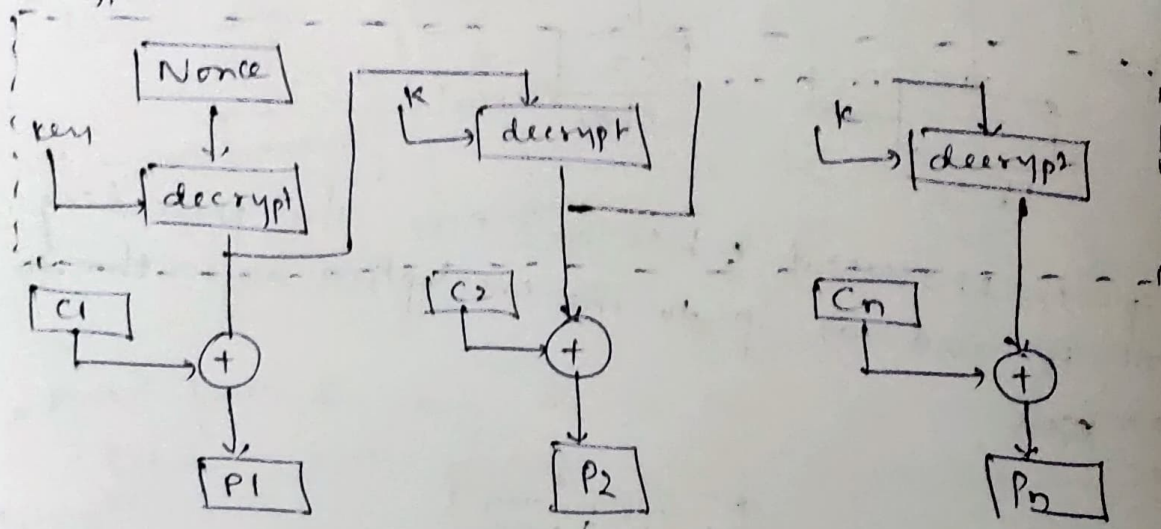 Nonce
key
decrypt
K
decrypt
K
decrypt
C1
C2
Cn
+
+
+
P1
P2
Pn